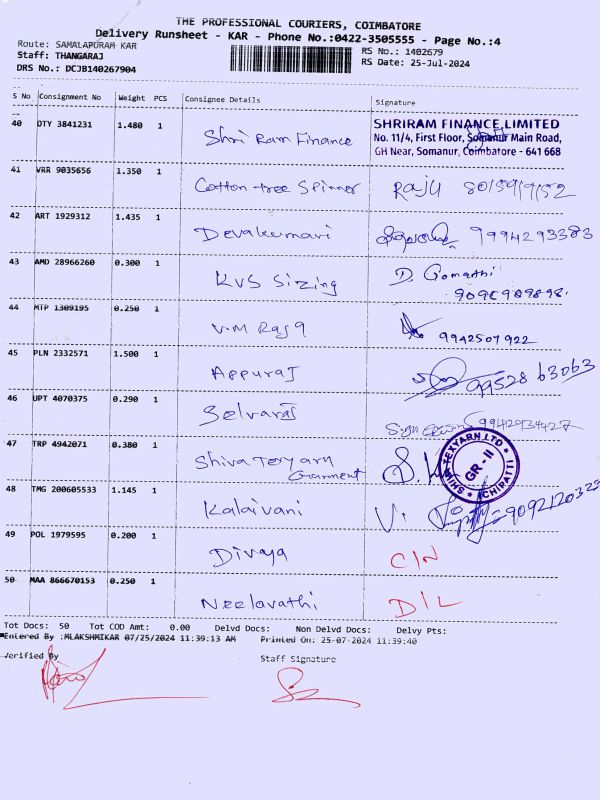 THE PROFESSIONAL COURIERS, COIMBATORE
Delivery Runsheet - KAR - Phone No.:0422-3505555 - Page No.:4
Route: SAMALAPURAM KAR
RS No.: 1402679
Staff: THANGARAJ
RS Date: 25-Jul-2024
DRS No.: DCJB140267904
S No Consignment No Weight PCS Consignee Details Signature
40 DTY 3841231 1.480 1 Shri Ram Finance
SHRIRAM FINANCE LIMITED
No. 11/4, First Floor, Somanur Main Road,
GH Near, Somanur, Coimbatore - 641 668
41 VRR 9035656 1.350 1 Cotton tree Spinner RAJU
42 ART 1929312 1.435 1 Devakumari 9994293383
43 AMD 28966260 0.300 1 KVS Sizing D. Gomathi
44 MTP 1309195 0.250 1 V.M Raja 9942507922
45 PLN 2332571 1.500 1 Appuraj 99528 63063
46 UPT 4070375 0.290 1 Selvaraj
47 TRP 4942071 0.380 1 Shiva Texyarn
Garment
SHIVA TEXYARN LTD
GR - II
48 TMG 200605533 1.145 1 Kalaivani V.
49 POL 1979595 0.200 1 Divaya C/N
50 MAA 866670153 0.250 1 Neelavathi D/L
Tot Docs: 50 Tot COD Amt: 0.00 Delvd Docs: Non Delvd Docs: Delvy Pts:
Entered By :MLAKSHMIKAR 07/25/2024 11:39:13 AM Printed On: 25-07-2024 11:39:40
Verified By Staff Signature